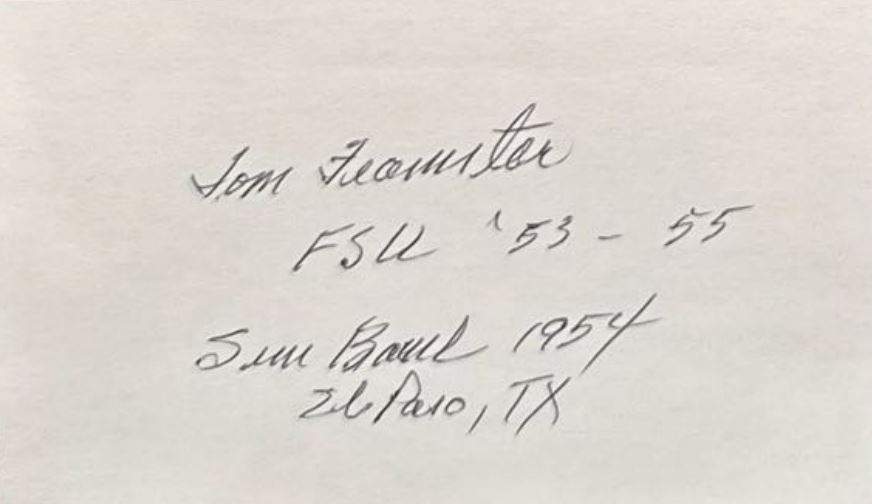 Tom Feamster
FSU '53 - 55
Sun Bowl 1954
El Paso, TX